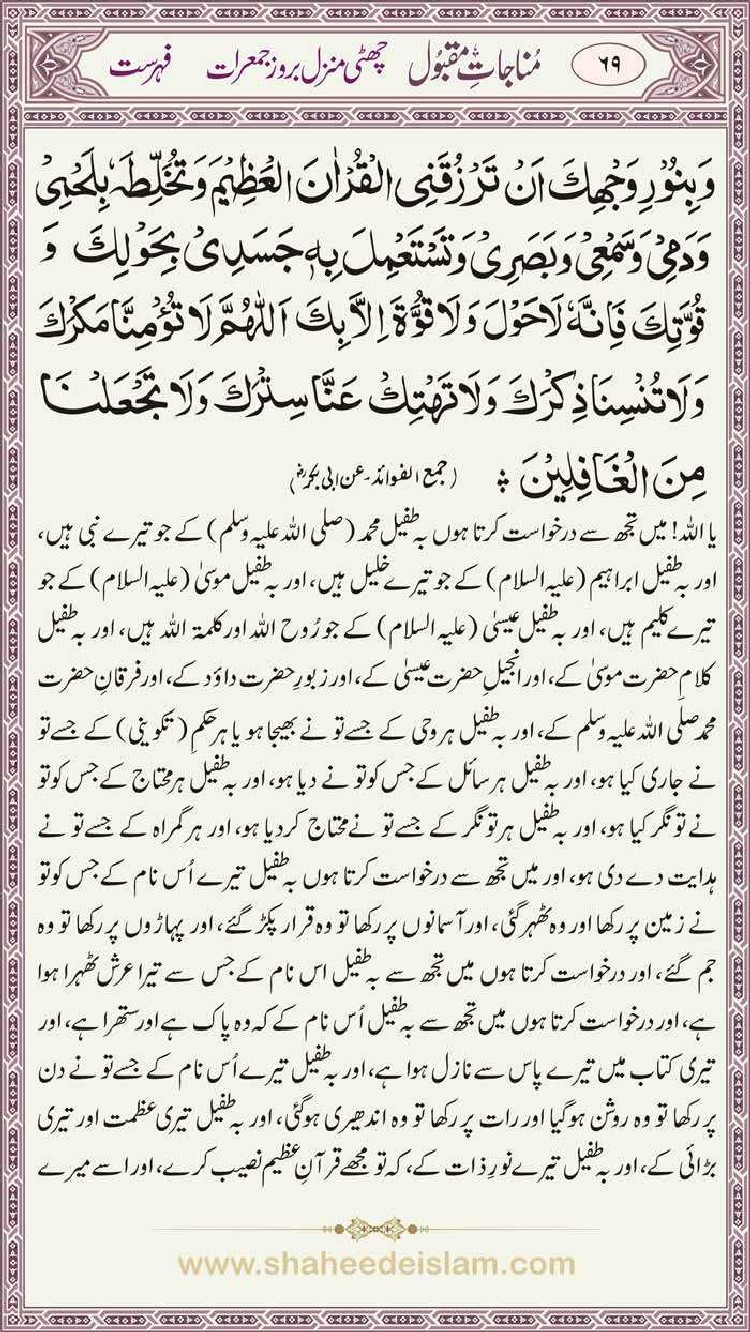 ۶۹ مُناجاتِ مقبُول چھٹی منزل بروز جمعرات فہرست
وَبِنُوْرِ وَجْهِكَ اَنْ تَرْزُقَنِی الْقُرْاٰنَ الْعَظِیْمَ وَتُخَلِّطَهٗ بِلَحْمِیْ
وَدَمِیْ وَسَمْعِیْ وَبَصَرِیْ وَتَسْتَعْمِلَ بِهٖ جَسَدِیْ بِحَوْلِكَ وَ
قُوَّتِكَ فَاِنَّهٗ لَاحَوْلَ وَلَا قُوَّةَ اِلَّا بِكَ اَللّٰهُمَّ لَا تُؤْمِنَّا مَكْرَكَ
وَلَا تُنْسِنَا ذِكْرَكَ وَلَا تَهْتِكْ عَنَّا سِتْرَكَ وَلَا تَجْعَلْنَا
مِنَ الْغَافِلِیْنَ (جمع الفوائد۔عن ابی بکرؓ)
یا اللہ! میں تجھ سے درخواست کرتا ہوں بہ طفیل محمد (صلی اللہ علیہ وسلم) کے جو تیرے نبی ہیں،
اور بہ طفیل ابراہیم (علیہ السلام) کے جو تیرے خلیل ہیں، اور بہ طفیل موسیٰ (علیہ السلام) کے جو
تیرے کلیم ہیں، اور بہ طفیل عیسیٰ (علیہ السلام) کے جو رُوح اللہ اور کلمۃ اللہ ہیں، اور بہ طفیل
کلامِ حضرت موسیٰ کے، اور انجیلِ حضرت عیسیٰ کے، اور زبورِ حضرت داؤد کے، اور فرقانِ حضرت
محمد صلی اللہ علیہ وسلم کے، اور بہ طفیل ہر وحی کے جسے تو نے بھیجا ہو یا ہر حکمِ (تکوینی) کے جسے تو
نے جاری کیا ہو، اور بہ طفیل ہر سائل کے جس کو تو نے دیا ہو، اور بہ طفیل ہر محتاج کے جس کو تو
نے تونگر کیا ہو، اور بہ طفیل ہر تونگر کے جسے تو نے محتاج کردیا ہو، اور ہر گمراہ کے جسے تو نے
ہدایت دے دی ہو، اور میں تجھ سے درخواست کرتا ہوں بہ طفیل تیرے اُس نام کے جس کو تو
نے زمین پر رکھا اور وہ ٹھہر گئی، اور آسمانوں پر رکھا تو وہ قرار پکڑ گئے، اور پہاڑوں پر رکھا تو وہ
جم گئے، اور درخواست کرتا ہوں میں تجھ سے بہ طفیل اس نام کے جس سے تیرا عرش ٹھہرا ہوا
ہے، اور درخواست کرتا ہوں میں تجھ سے بہ طفیل اُس نام کے کہ وہ پاک ہے اور ستھرا ہے، اور
تیری کتاب میں تیرے پاس سے نازل ہوا ہے، اور بہ طفیل تیرے اُس نام کے جسے تو نے دن
پر رکھا تو وہ روشن ہوگیا اور رات پر رکھا تو وہ اندھیری ہوگئی، اور بہ طفیل تیری عظمت اور تیری
بڑائی کے، اور بہ طفیل تیرے نورِ ذات کے، کہ تو مجھے قرآنِ عظیم نصیب کرے، اور اسے میرے
www.shaheedeislam.com